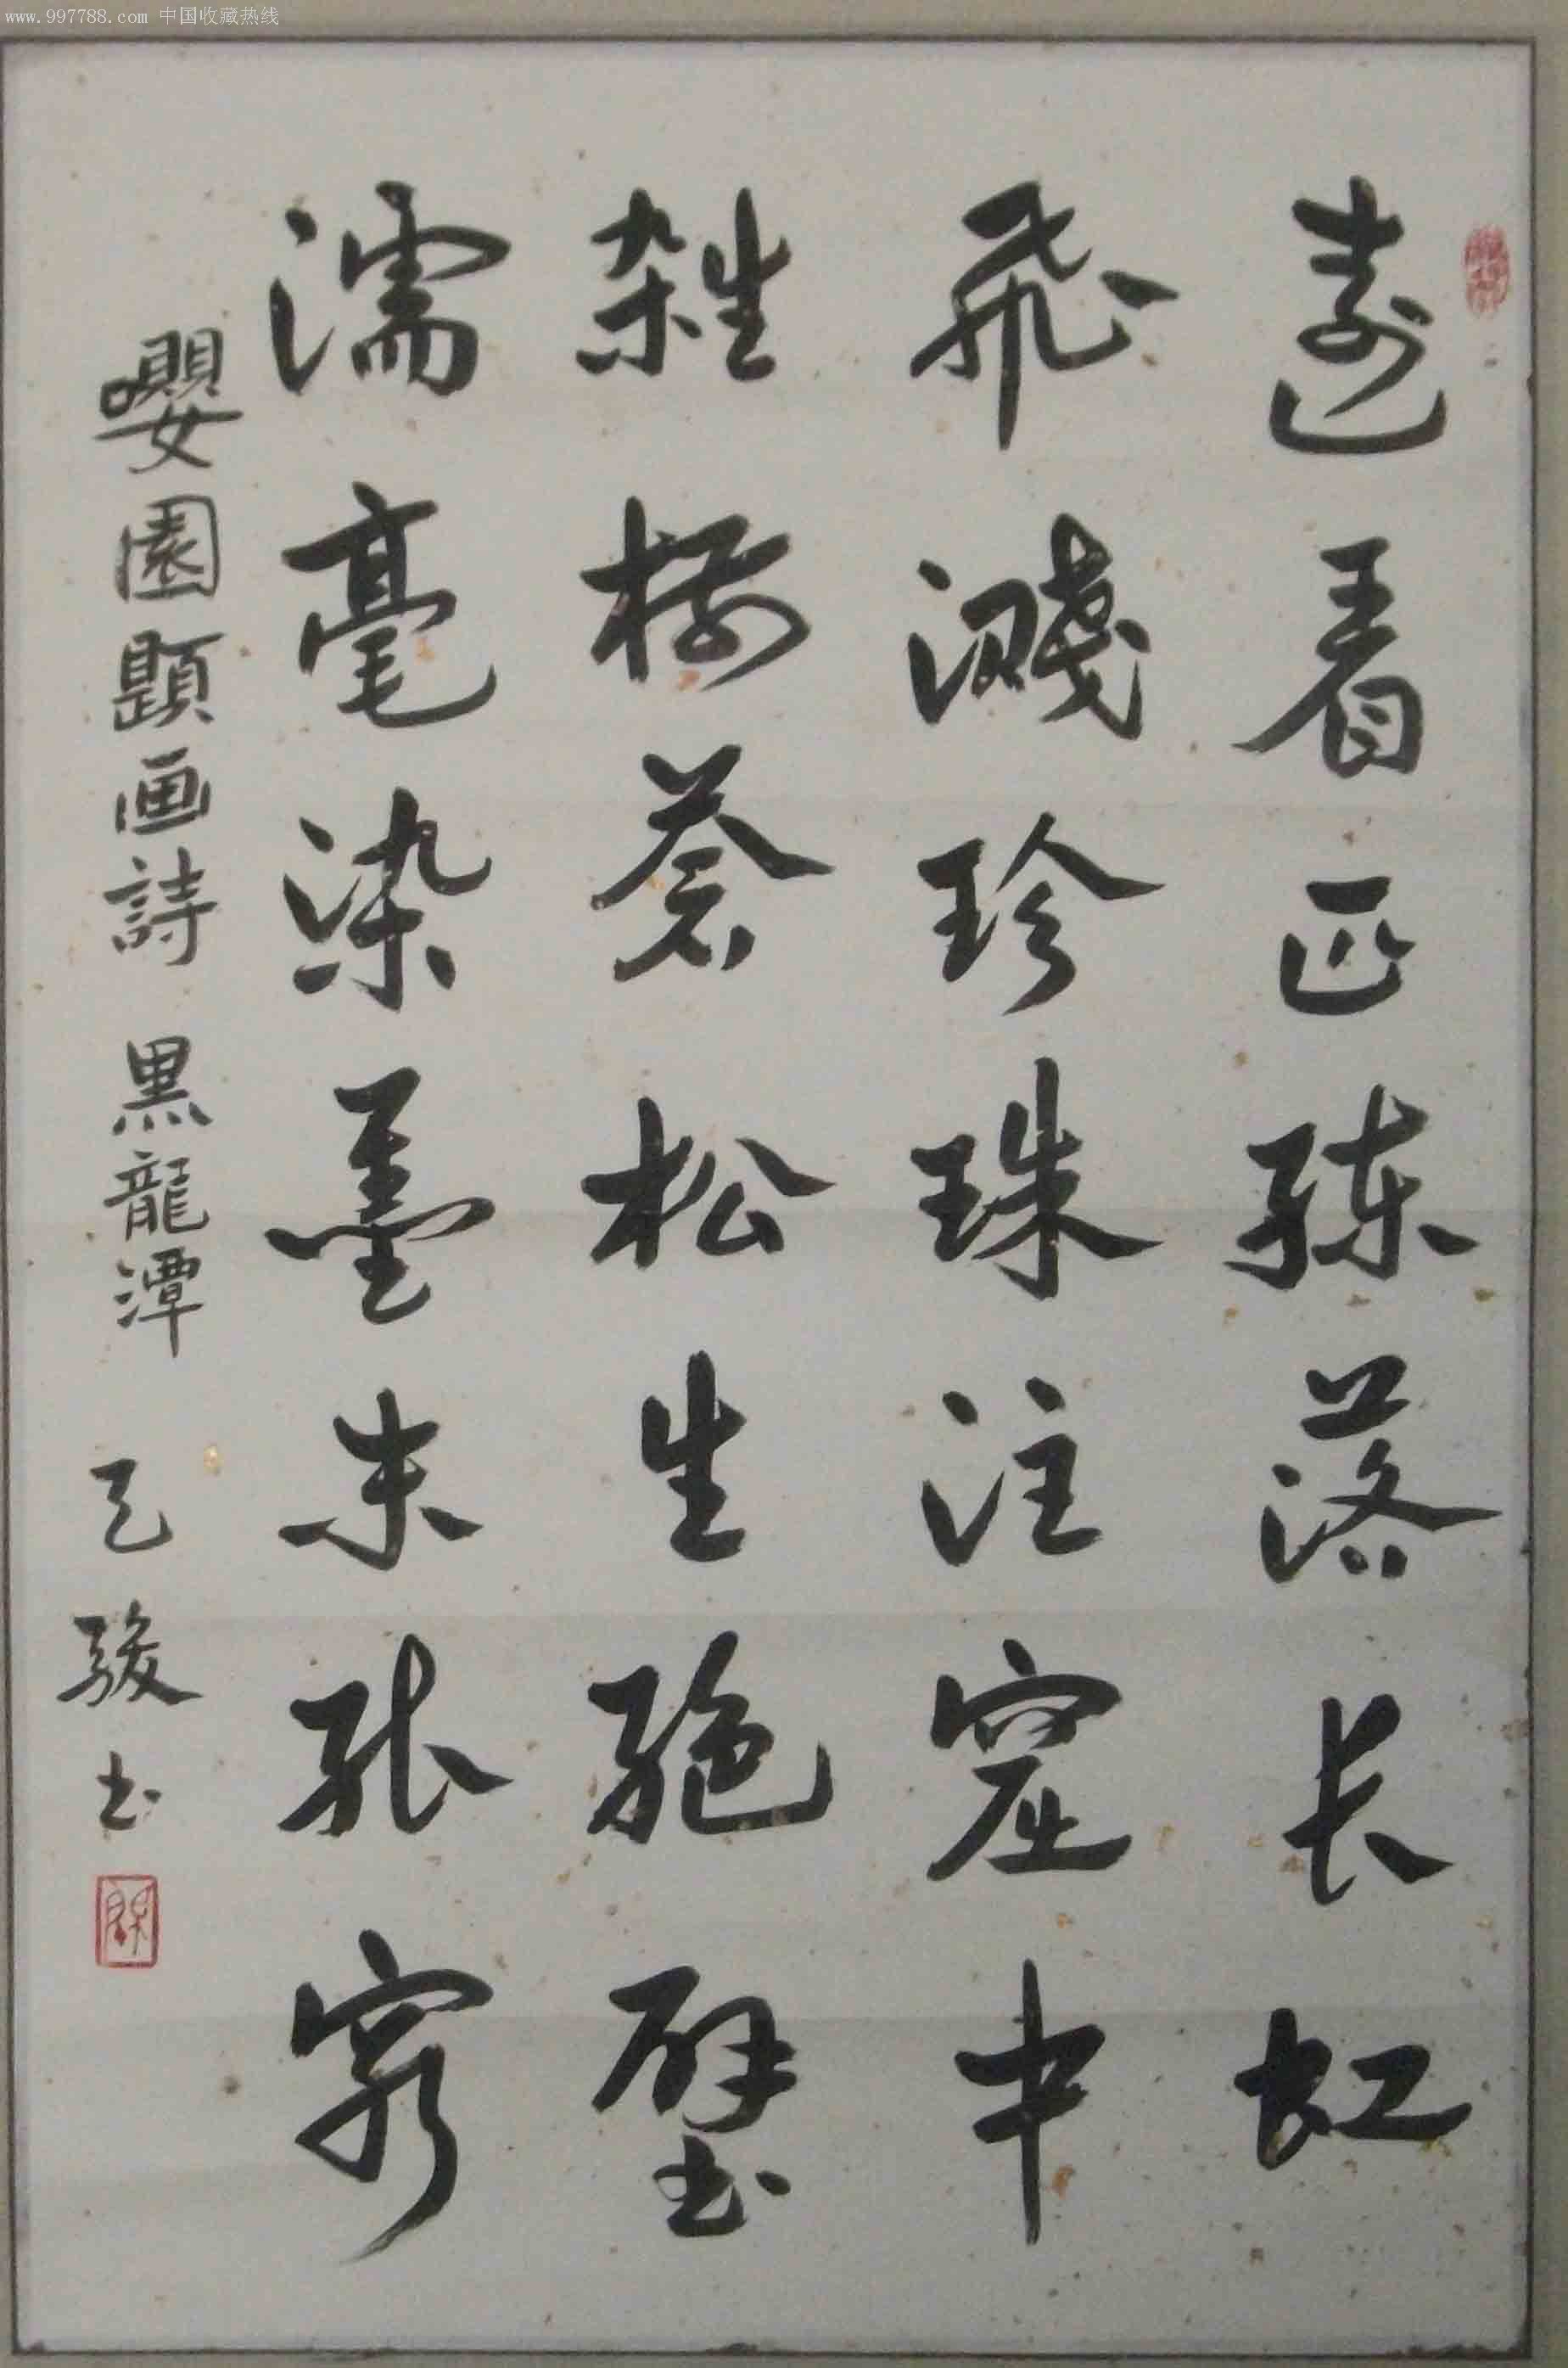 www.997788.com 中国收藏热线
遠看匹練落长虹
飛濺珍珠注窟中
雜樹蒼松生絕壁
濡毫染墨未形容
嬰園題画詩 黑龍潭 乙駿书